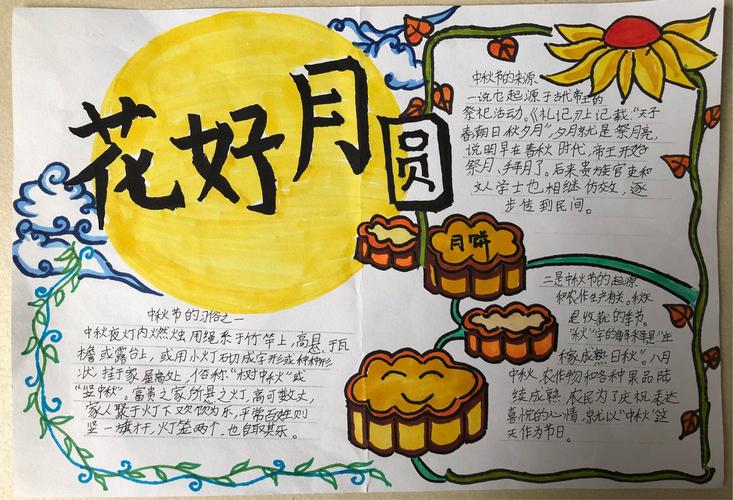 花好月圆
中秋节的来源
一说它起源于古代帝王的
祭祀活动。《礼记》上记载:“天子
春朝日秋夕月”,夕月就是祭月亮,
说明早在春秋时代,帝王开始
祭月、拜月了。后来贵族官吏和
文人学士也相继仿效,逐
步传到民间。
月饼
二是中秋节的起源
和农作生产有关。秋天
是收获的季节。
“秋”字的解释是:“庄
稼成熟曰秋”。八月
中秋,农作物和各种果品陆
续成熟,农民为了庆祝,表达
喜悦的心情,就以“中秋”这
天作为节日。
中秋节的习俗之一
中秋夜灯内燃烛用绳系于竹竿上,高悬于瓦
檐或露台上,或用小灯砌成字形或种种形
状,挂于家屋高处,俗称“树中秋”或
“竖中秋”。富贵之家所悬之灯,高可数丈,
家人聚于灯下欢饮为乐,平常百姓则
竖一旗杆,灯笼两个,也自取其乐。